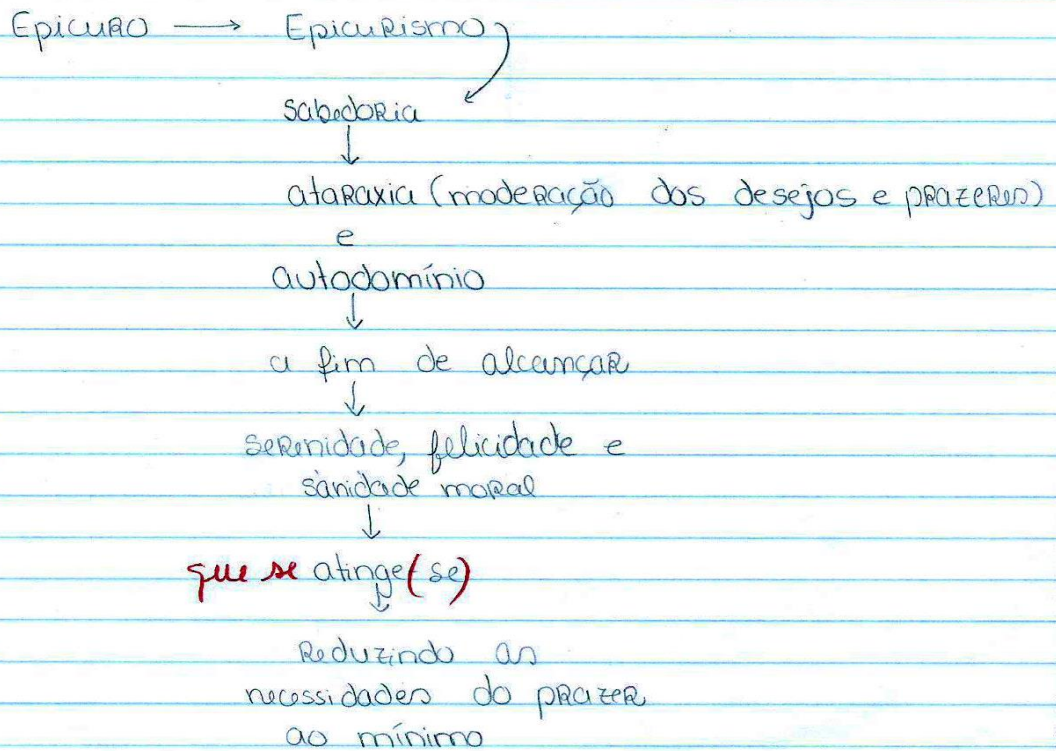 Epicuro → Epicurismo
sabedoria
ataraxia (moderação dos desejos e prazeres)
e
autodomínio
a fim de alcançar
serenidade, felicidade e
sanidade moral
que se atinge(se)
Reduzindo as
necessidades do prazer
ao mínimo